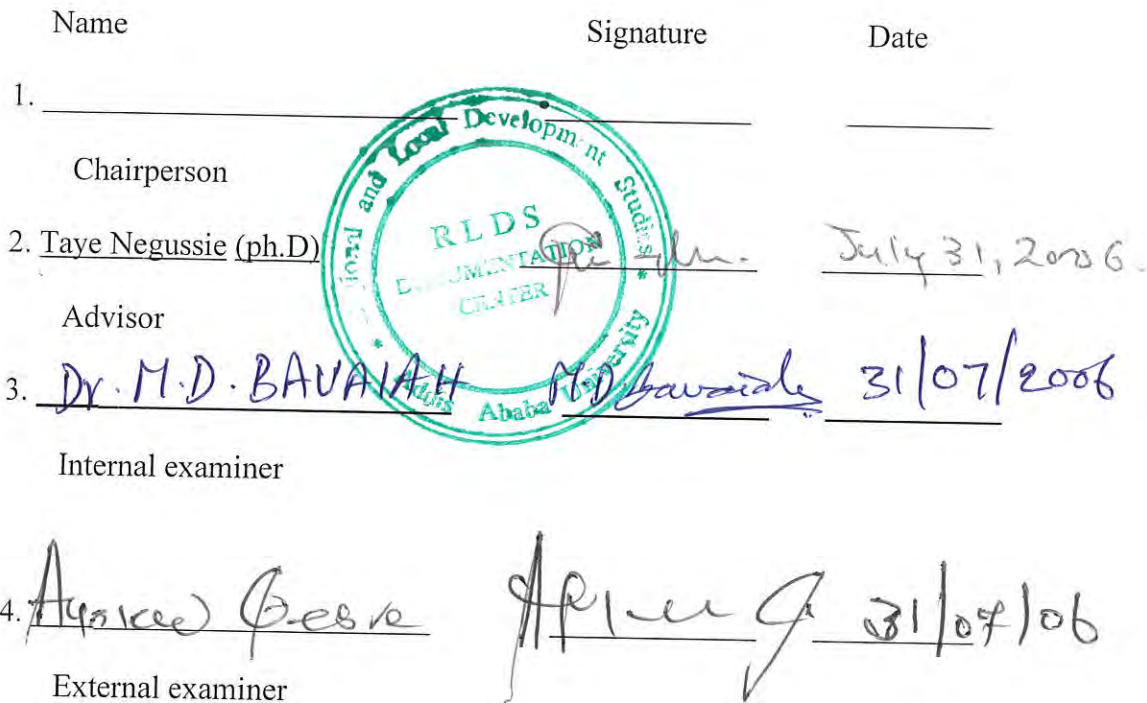 Name Signature Date
1.
Chairperson
2. Taye Negussie (ph.D) July 31, 2006.
Advisor
3. Dr. M.D. BAVAIAH M.D. bavaiah 31/07/2006
Internal examiner
4. 31/07/06
External examiner
and Local Development Studies
RLDS
DOCUMENTATION
CENTER
* Addis Ababa University *